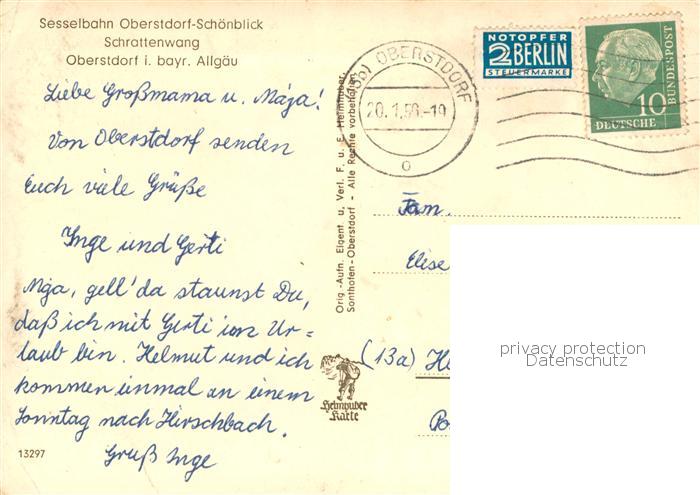 Sesselbahn Oberstdorf-Schönblick
Schrattenwang
Oberstdorf i. bayr. Allgäu
Liebe Großmama u. Mága!
Von Oberstdorf senden
Euch viele Grüße
Inge und Gerti
Mga, gell' da staunst Du,
daß ich mit Gerti im Ur=
laub bin. Helmut und ich
kommen einmal an einem
Sonntag nach Hirschbach.
Gruß Inge
13297
Orig.-Aufn. Eigent. u. Verl. F. u. E. Heimhuber,
Sonthofen-Oberstdorf - Alle Rechte vorbehalten
Heimhuber
Karte
OBERSTDORF
20.1.56.-19
NOTOPFER
2 BERLIN
STEUERMARKE
10
DEUTSCHE
BUNDESPOST
Fam.
Elise
(13a) He
Po
privacy protection
Datenschutz